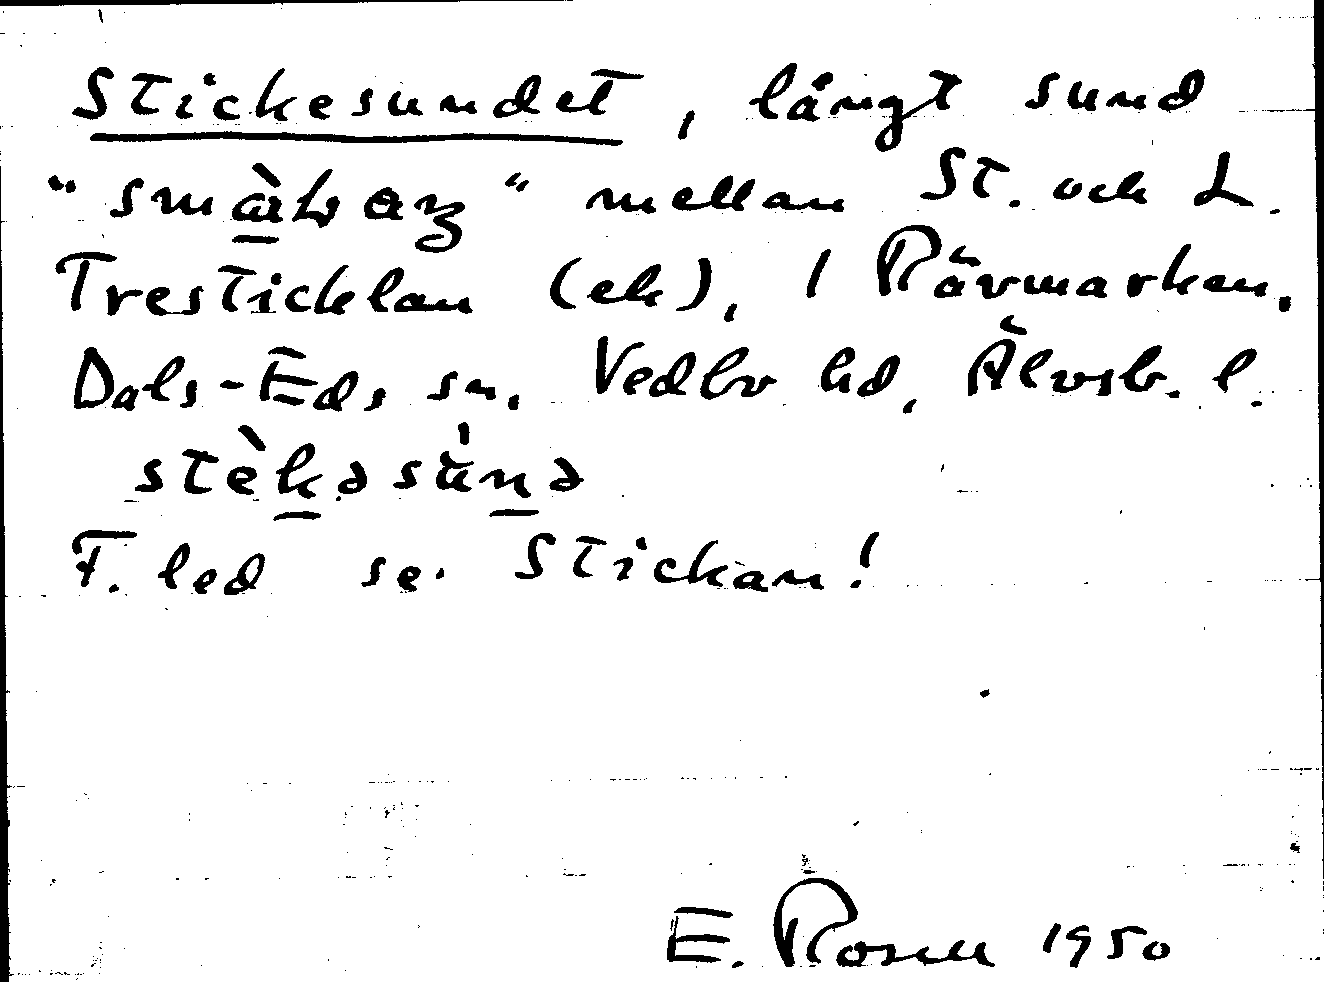 Stickesundet, långt sund
mellan St. och L.
Tresticklan (ek), i Rävmarken,
Dals-Eds sn, Vedbo hd, Älvsb. l.
F. led se. Stickan!
E. Rosell 1950